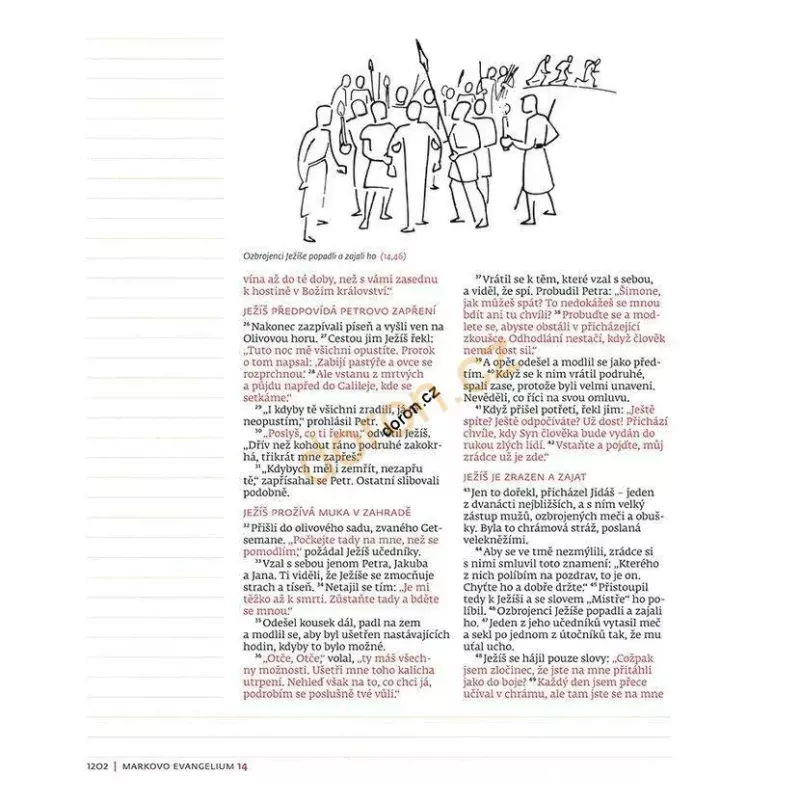 Ozbrojenci Ježíše popadli a zajali ho (14,46)
vína až do té doby, než s vámi zasednu
k hostině v Božím království.“
JEŽÍŠ PŘEDPOVÍDÁ PETROVO ZAPŘENÍ
26 Nakonec zazpívali píseň a vyšli ven na
Olivovou horu. 27 Cestou jim Ježíš řekl:
„Tuto noc mě všichni opustíte. Prorok
o tom napsal: ‚Zabijí pastýře a ovce se
rozprchnou.‘ 28 Ale vstanu z mrtvých
a půjdu napřed do Galileje, kde se
setkáme.“
29 „I kdyby tě všichni zradili, já
neopustím,“ prohlásil Petr.
30 „Poslyš, co ti řeknu,“ odvětil Ježíš.
„Dřív než kohout ráno podruhé zakokr-
há, třikrát mne zapřeš.“
31 „Kdybych měl i zemřít, nezapřu
tě,“ zapřísahal se Petr. Ostatní slibovali
podobně.
JEŽÍŠ PROŽÍVÁ MUKA V ZAHRADĚ
32 Přišli do olivového sadu, zvaného Get-
semane. „Počkejte tady na mne, než se
pomodlím,“ požádal Ježíš učedníky.
33 Vzal s sebou jenom Petra, Jakuba
a Jana. Ti viděli, že Ježíše se zmocňuje
strach a tíseň. 34 Netajil se tím: „Je mi
těžko až k smrti. Zůstaňte tady a bděte
se mnou.“
35 Odešel kousek dál, padl na zem
a modlil se, aby byl ušetřen nastávajících
hodin, kdyby to bylo možné.
36 „Otče, Otče,“ volal, „ty máš všech-
ny možnosti. Ušetři mne toho kalicha
utrpení. Nehleď však na to, co chci já,
podrobím se poslušně tvé vůli.“
37 Vrátil se k těm, které vzal s sebou,
a viděl, že spí. Probudil Petra: „Šimone,
jak můžeš spát? To nedokážeš se mnou
bdít ani tu chvíli? 38 Probuďte se a mod-
lete se, abyste obstáli v přicházející
zkoušce. Odhodlání nestačí, když člověk
nemá dost sil.“
39 A opět odešel a modlil se jako před-
tím. 40 Když se k nim vrátil podruhé,
spali zase, protože byli velmi unaveni.
Nevěděli, co říci na svou omluvu.
41 Když přišel potřetí, řekl jim: „Ještě
spíte? Ještě odpočíváte? Už dost! Přichází
chvíle, kdy Syn člověka bude vydán do
rukou zlých lidí. 42 Vstaňte a pojďte, můj
zrádce už je zde.“
JEŽÍŠ JE ZRAZEN A ZAJAT
43 Jen to dořekl, přicházel Jidáš – jeden
z dvanácti nejbližších, a s ním velký
zástup mužů, ozbrojených meči a obuš-
ky. Byla to chrámová stráž, poslaná
velekněžími.
44 Aby se ve tmě nezmýlili, zrádce si
s nimi smluvil toto znamení: „Kterého
z nich políbím na pozdrav, to je on.
Chyťte ho a dobře držte.“ 45 Přistoupil
tedy k Ježíši a se slovem „Mistře“ ho po-
líbil. 46 Ozbrojenci Ježíše popadli a zajali
ho. 47 Jeden z jeho učedníků vytasil meč
a sekl po jednom z útočníků tak, že mu
uťal ucho.
48 Ježíš se hájil pouze slovy: „Cožpak
jsem zločinec, že jste na mne přitáhli
jako do boje? 49 Každý den jsem přece
učíval v chrámu, ale tam jste se na mne
doron.cz
doron.cz
1202 | MARKOVO EVANGELIUM 14